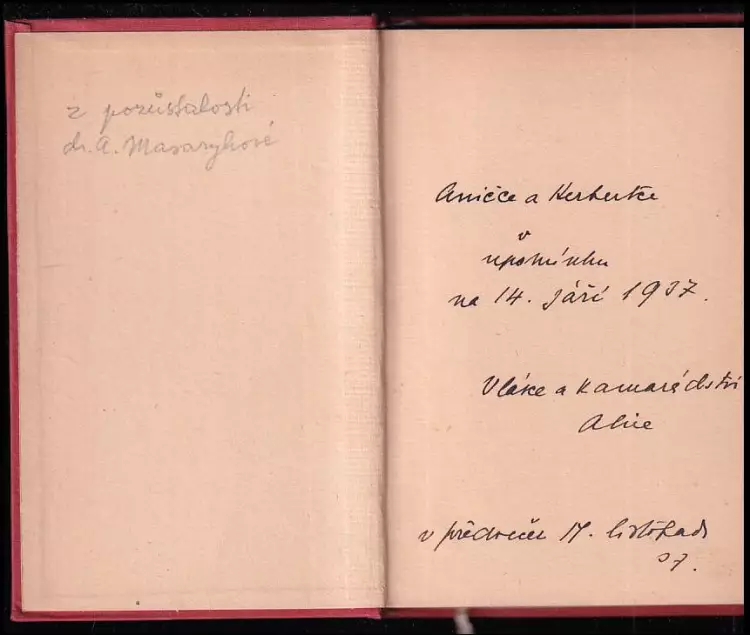 z pozůstalosti
dr. A. Masarykové
Aničce a Herbertce
v
upomínku
na 14. září 1937.
V lásce a kamarádství
Alice
v předvečer 17. listopad
37.